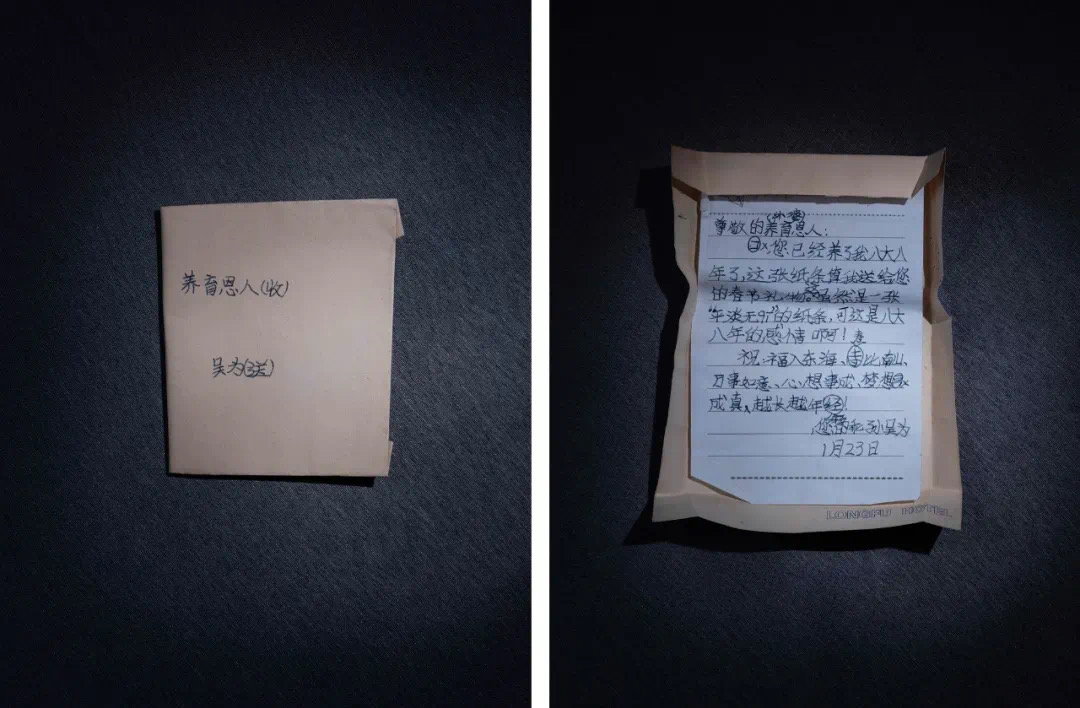 养育恩人(收)
吴为(送)
(外婆)
尊敬的养育恩人：
您已经养了我八大八
年了,这张纸条算我送给您
的春节礼物。虽然是一张
"平淡无奇"的纸条,可这是八大
八年的感情啊！
祝:福入东海、寿比南山、
万事如意、心想事成、梦想
成真、越长越年轻！
您的 孙吴为
1月23日
LONGFU HOTEL